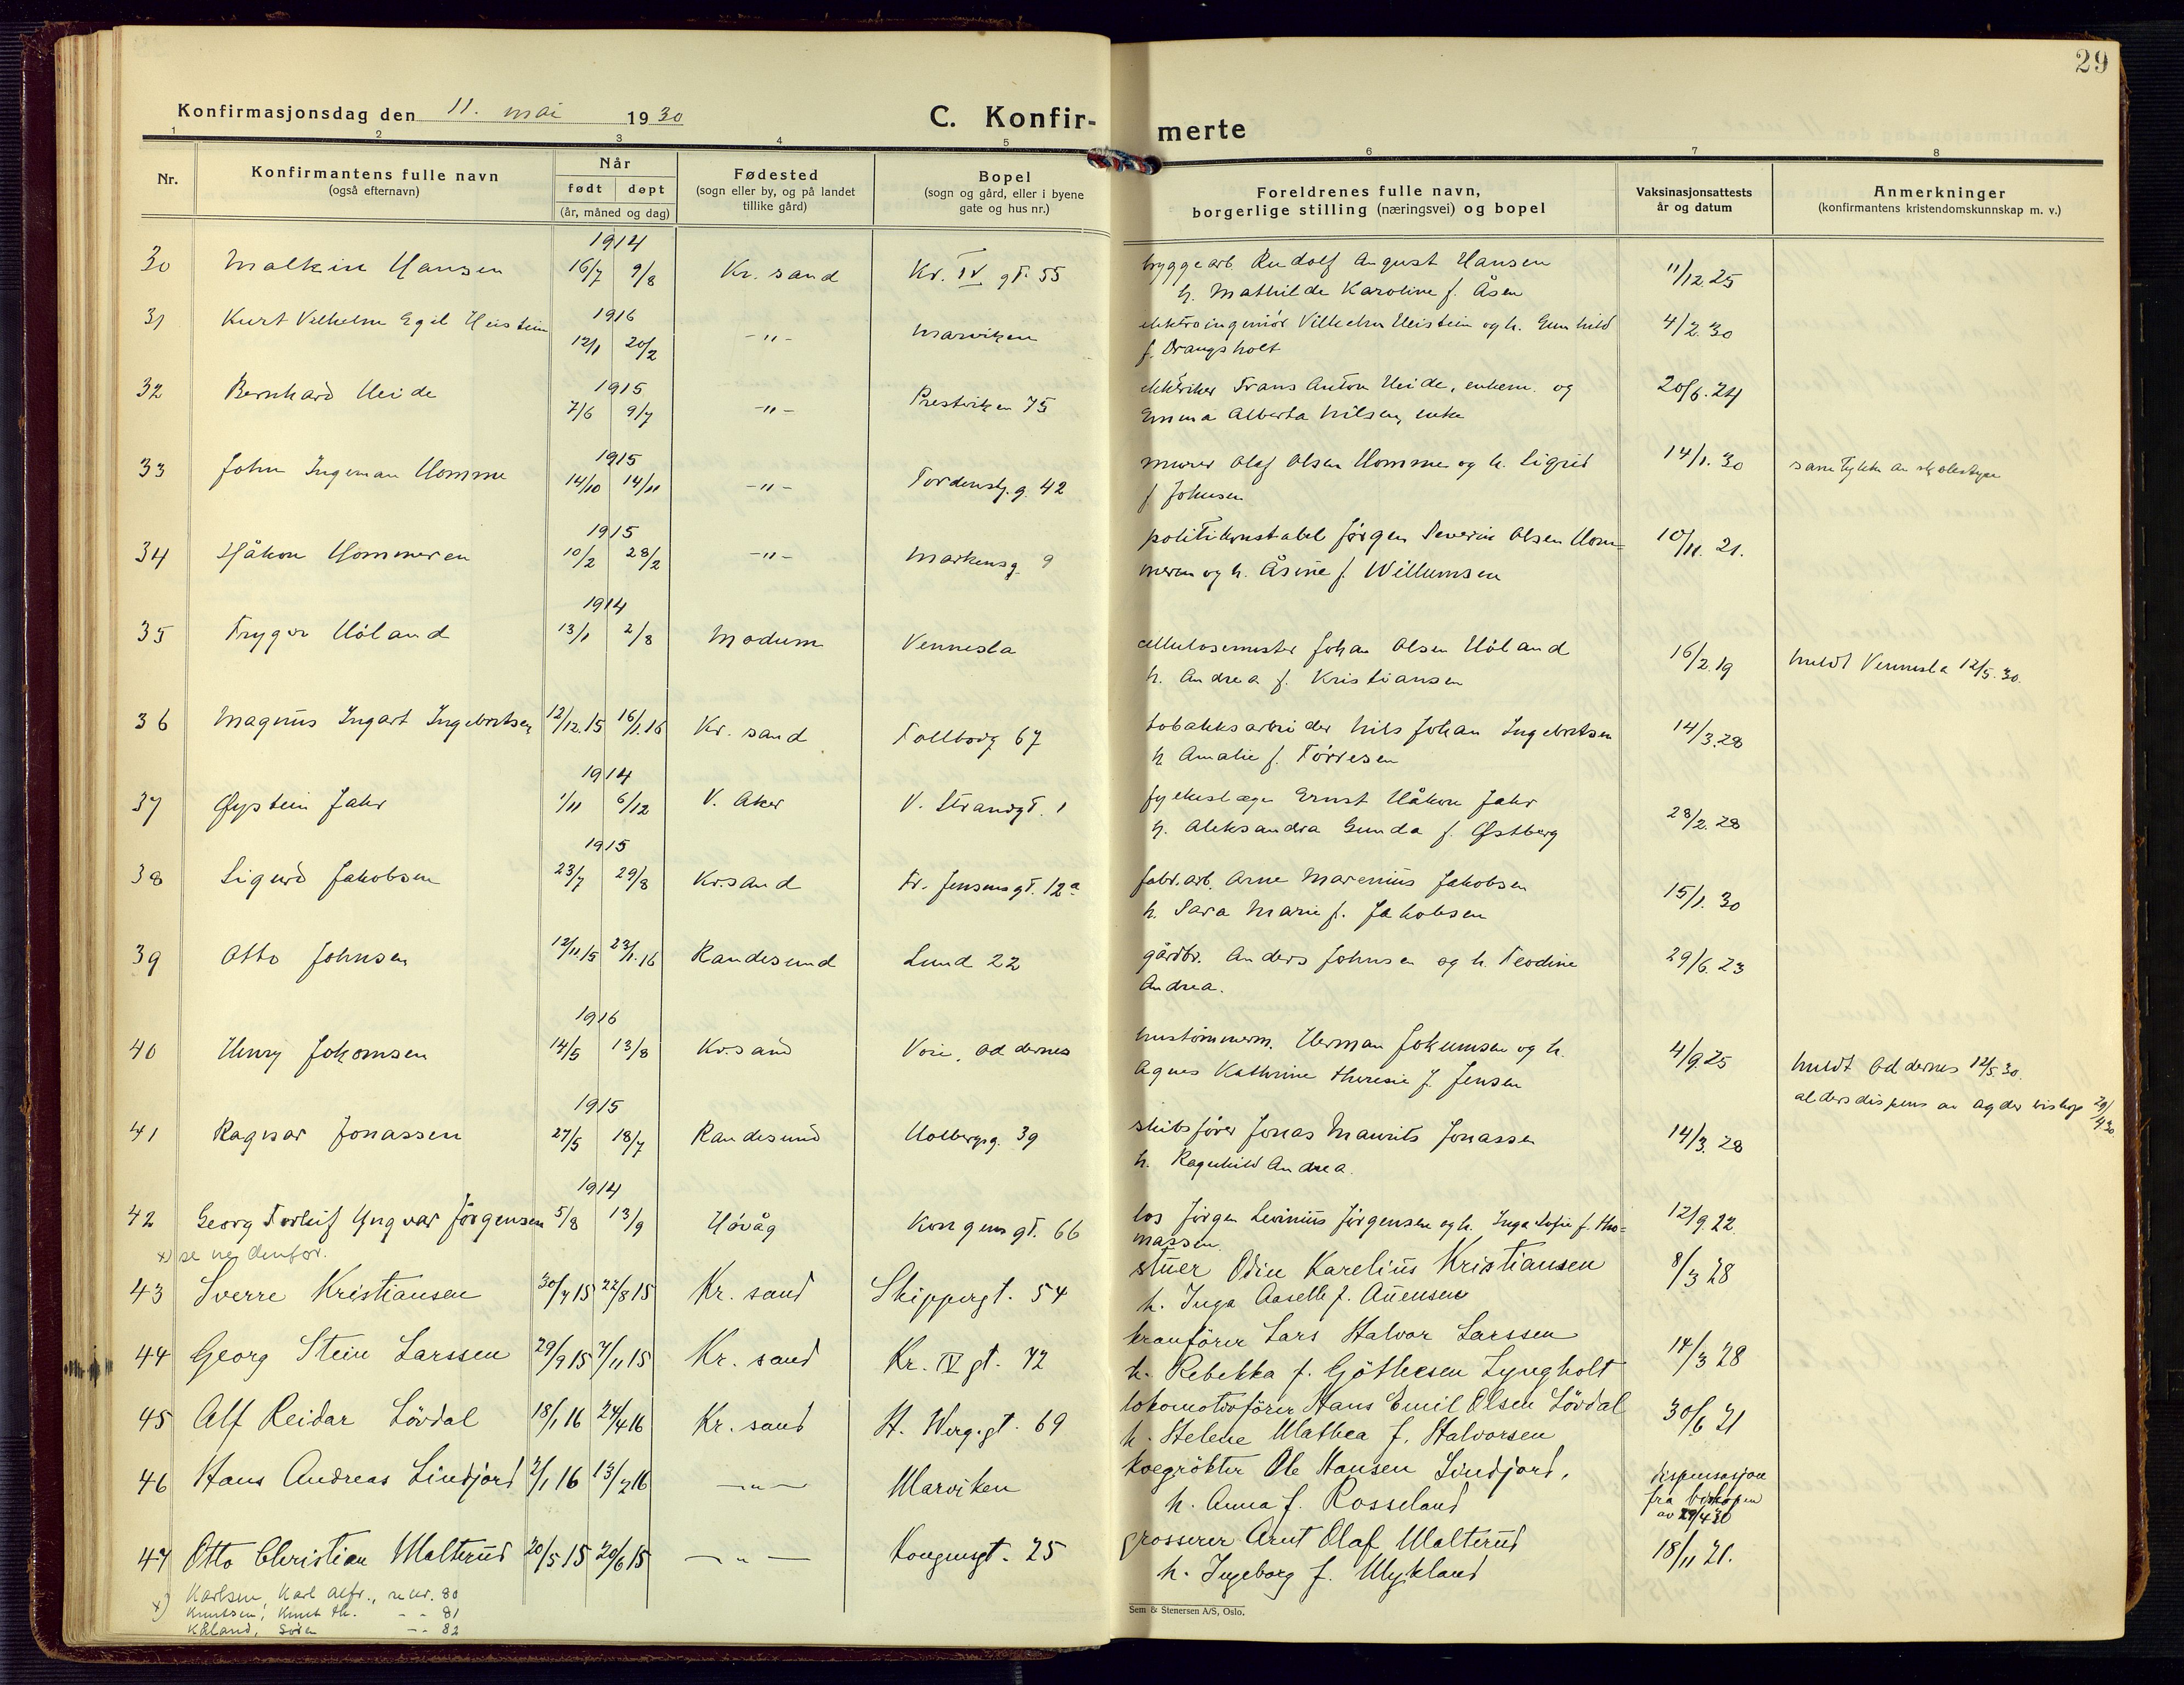 29
Konfirmasjonsdag den 11. mai 1930
C. Konfir-
merte
1 2 3 4 5 6 7 8
Nr.
Konfirmantens fulle navn
(også efternavn)
Når
født døpt
(år, måned og dag)
Fødested
(sogn eller by, og på landet
tillike gård)
Bopel
(sogn og gård, eller i byene
gate og hus nr.)
Foreldrenes fulle navn,
borgerlige stilling (næringsvei) og bopel
Vaksinasjonsattests
år og datum
Anmerkninger
(konfirmantens kristendomskunnskap m. v.)
1914
30 Malkin Hansen 16/7 9/8 Kr. sand Kr. IV gt. 55 bryggearb. Rudolf August Hansen 11/12.25
h. Mathilde Karoline f. Åsen
1916
31 Kurt Vilhelm Egil Heistein 12/1 20/2 -"- Marviken elektroingeniör Vilhelm Heistein og h. Gunhild 4/2.30
f. Drangsholt
1915
32 Bernhard Heide 7/6 9/7 -"- Prestviken 75 elektriker Frans Anton Heide, enkem. og 20/6.24
Emma Alberta Nilsen, enke
1915
33 John Ingeman Homme 14/10 14/11 -"- Tordenskj.g. 42 murer Olaf Olsen Homme og h. Sigrid 14/1.30
f. Johnsen
1915
34 Håkon Hommeren 10/2 28/2 -"- Markensg. 9 politikonstabel Jörgen Severin Olsen Hom- 10/11.21.
meren og h. Åsine f. Willumsen
1914
35 Trygve Höland 13/1 2/8 Modum Vennesla cellulosemester Johan Olsen Höland 16/2.19 meldt Vennesla 12/5.30.
h. Andrea f. Kristiansen
36 Magnus Ingart Ingebretsen 12/12.15 16/1.16 Kr. sand Tollbodg 67 tobakksarbeider Nils Johan Ingebretsen 14/3.28
h Amalie f. Törresen
1914
37 Øystein Jahr 1/11 6/12 V. Aker V. Strandgt. 1 fylkeslæge Ernst Håkon Jahr 28/2.28
h. Aleksandra Gunda f. Østberg
1915
38 Sigurd Jakobsen 23/7 29/8 Kr.sand Fr. Jensensgt. 12a fabr.arb. Arne Marenius Jakobsen 15/1.30
h. Sara Marie f. Jakobsen
39 Otto Johnsen 12/11.15 23/1.16 Randesund Lund 22 gårdbr. Anders Johnsen og h. Teodine 29/6.23
Andrea.
1916
40 Henry Jokomsen 14/5 13/8 Kr.sand Voie, Oddernes hustömmerm. Herman Jokumsen og h. 4/9.25 meldt Oddernes 12/5.30.
Agnes Kathrine Theresie f. Jensen
aldersdispens av Agder biskop 29/4 30
1915
41 Ragnar Jonassen 27/5 18/7 Randesund Holbergsg. 39 skibsförer Jonas Mauritz Jonassen 14/3.28
h. Ragnhild Andrea.
1914
42 Georg Torleif Yngvar Jörgensen 5/8 13/9 Hövåg Kongensgt. 66 los Jörgen Severinius Jörgensen og h. Inga Sofie f. Tho- 12/9.22
massen.
x) se nedenfor.
43 Sverre Kristiansen 30/7 15 22/8 15 Kr. sand Skippergt. 54 stuer Odin Karelius Kristiansen 8/3 28
h. Inga Aaselle f. Auensen
44 Georg Stein Larssen 29/9 15 7/11 15 Kr. sand Kr. IV gt. 72 kranförer Lars Halvor Larssen 14/3 28
h. Rebekka f. Göthesen Lyngholt
45 Alf Reidar Lövdal 18/1 16 24/4 16 Kr. sand H. Werg.gt. 69 lokomotivförer Hans Emil Olsen Lövdal 30/6 21
h. Helene Mathea f. Halvorsen
46 Hans Andreas Lindjord 2/1 16 13/2 16 -"- Marviken Ole Hansen Lindjord, dispensasjon
h. Anna f. Rosseland fra biskopen
av 29/4 30
47 Otto Christian Malterud 20/5 15 20/6 15 -"- Kongensgt. 25 grosserer Arnt Olaf Malterud 18/11 21.
h. Ingeborg f. Mykland
x) Karlsen, Karl Alfr., se nr. 80
Knutsen, Knut Th. - - 81
Kåland, Sören - - 82
Sem & Stenersen A/S, Oslo.